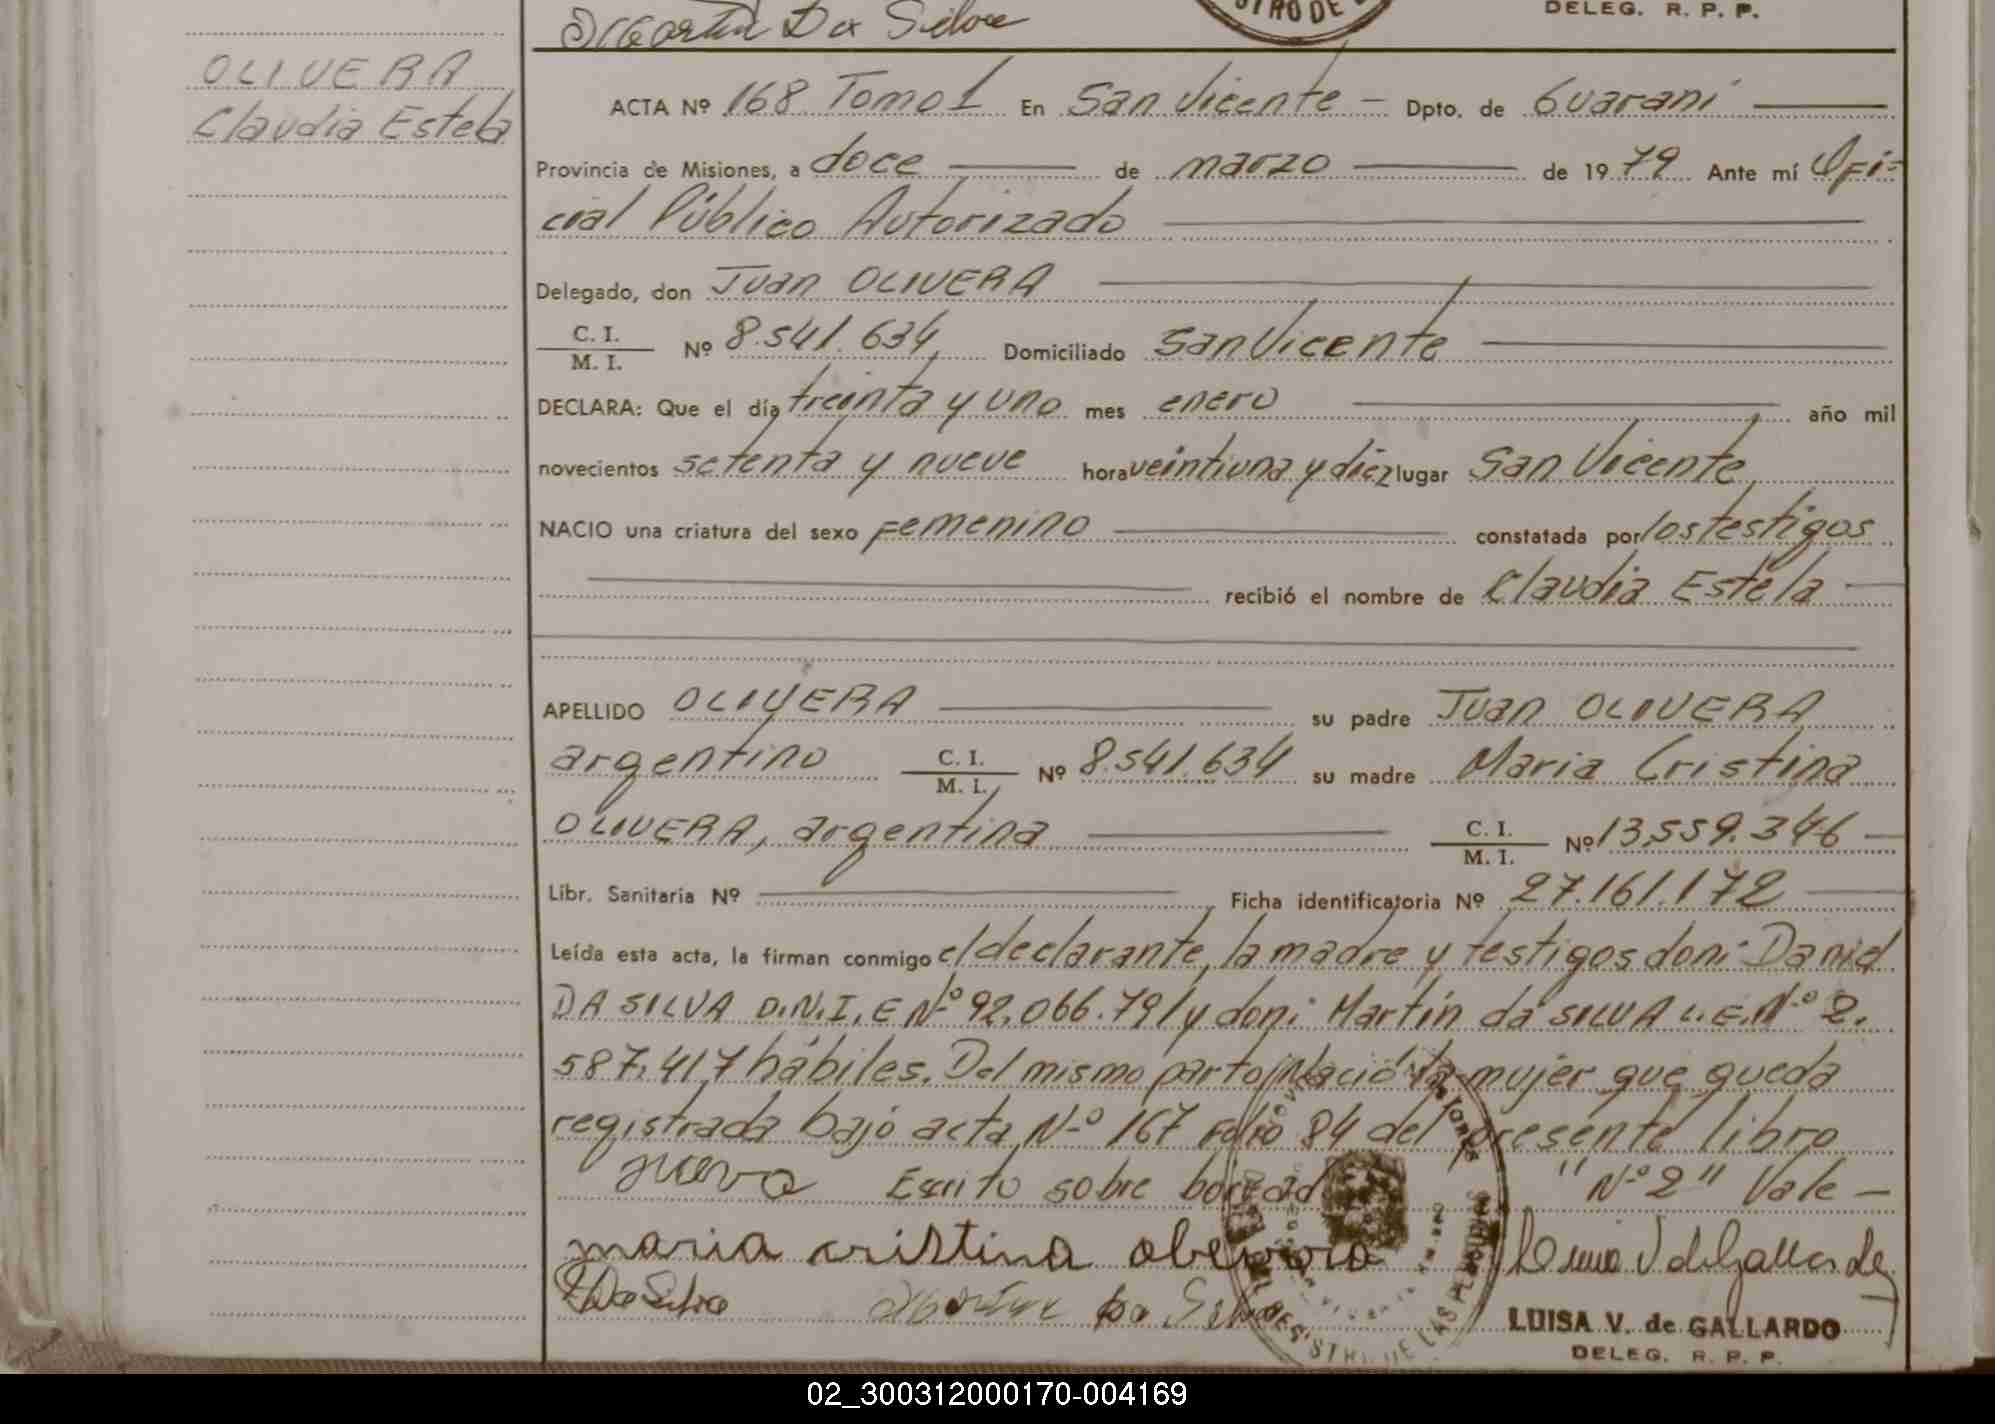 Martin Da Silva
STRO DE L
DELEG. R. P. P.
OLIVERA
Claudia Estela
ACTA Nº 168 Tomo 1 En San Vicente - Dpto. de Guaraní
Provincia de Misiones, a doce de marzo de 1979 Ante mí Ofi-
cial Público Autorizado
Delegado, don Juan OLIVERA
C. I.
M. I.
Nº 8.541.634 Domiciliado San Vicente
DECLARA: Que el día treinta y uno mes enero año mil
novecientos setenta y nueve hora veintiuna y diez lugar San Vicente
NACIO una criatura del sexo Femenino constatada por los testigos
recibió el nombre de Claudia Estela
APELLIDO OLIVERA su padre Juan OLIVERA
argentino C. I. M. I. Nº 8.541.634 su madre Maria Cristina
OLIVERA, argentina C. I. M. I. Nº 13.559.346
Libr. Sanitaria Nº Ficha identificatoria Nº 27.161.172
Leída esta acta, la firman conmigo el declarante, la madre y testigos don: Daniel
DA SILVA D.N.I.E Nº 92.066.791 y don: Martín da SILVA L.E. Nº 2.
587.417 hábiles. Del mismo parto Nació la mujer que queda
registrada bajo acta Nº 167 Folio 84 del presente libro
Escrito sobre borrado "Nº 2" Vale -
maria cristina olivera
D Da Silva Martin Da Silva
LUISA V. de GALLARDO
DELEG. R. P. P.
02_300312000170-004169